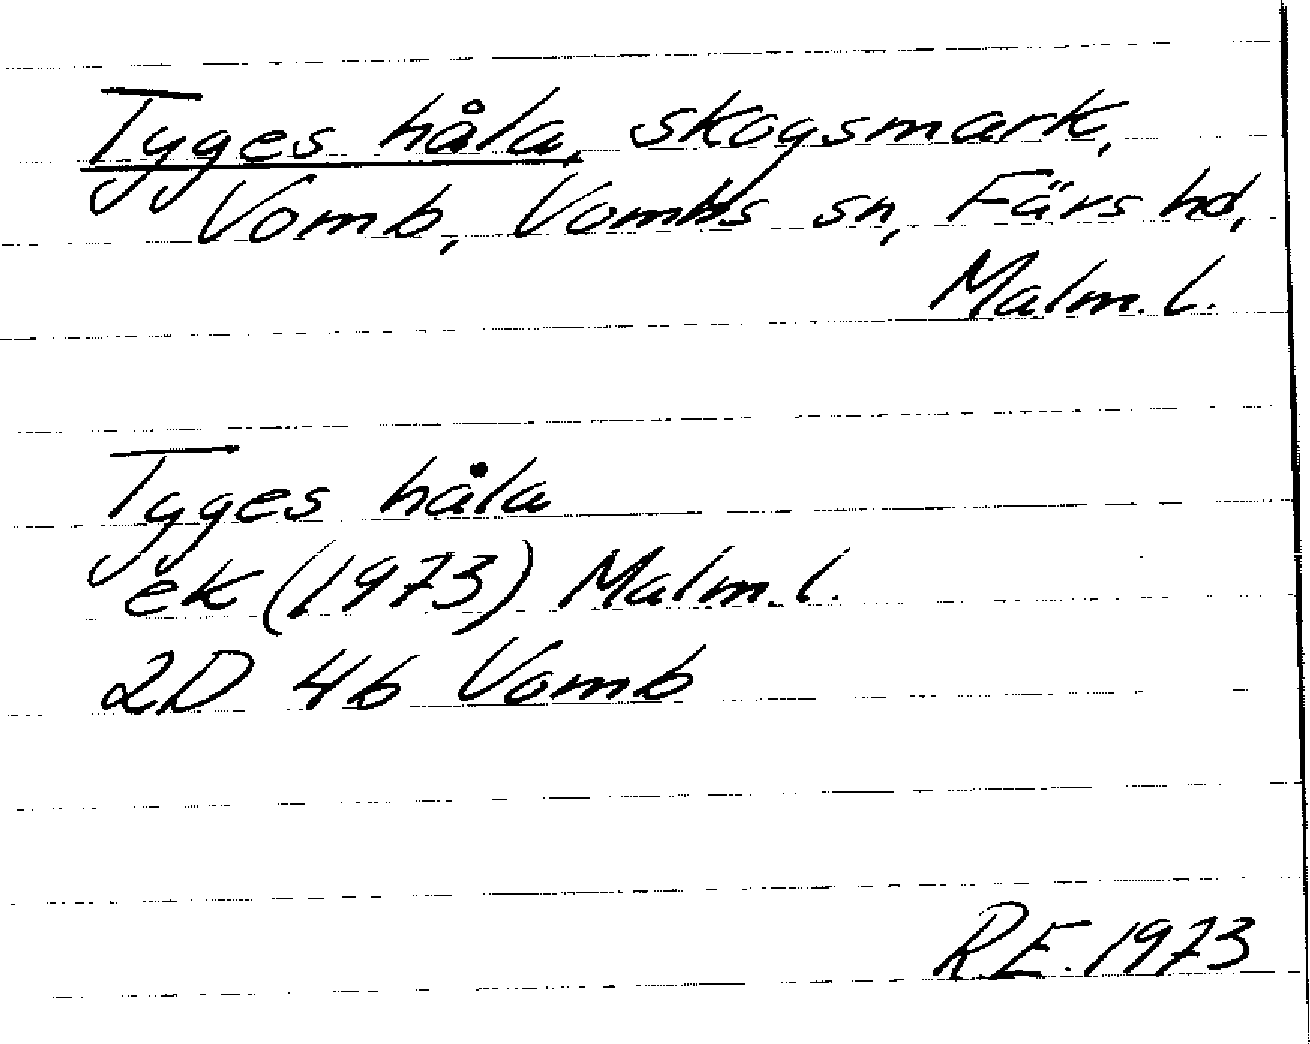 Tyges håla, skogsmark,
Vomb, Vombs sn, Färs hd,
Malm. l.
Tyges håla
ek (1973) Malm. l.
2D 4b Vomb
R.E. 1973